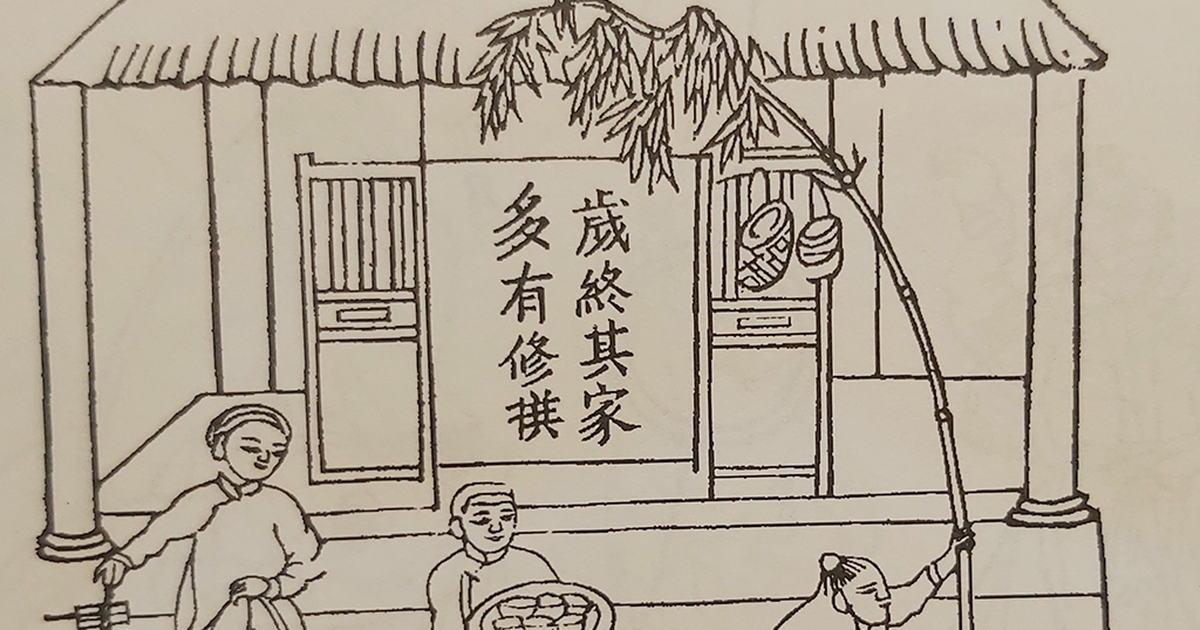 歲終其家
多有修拱